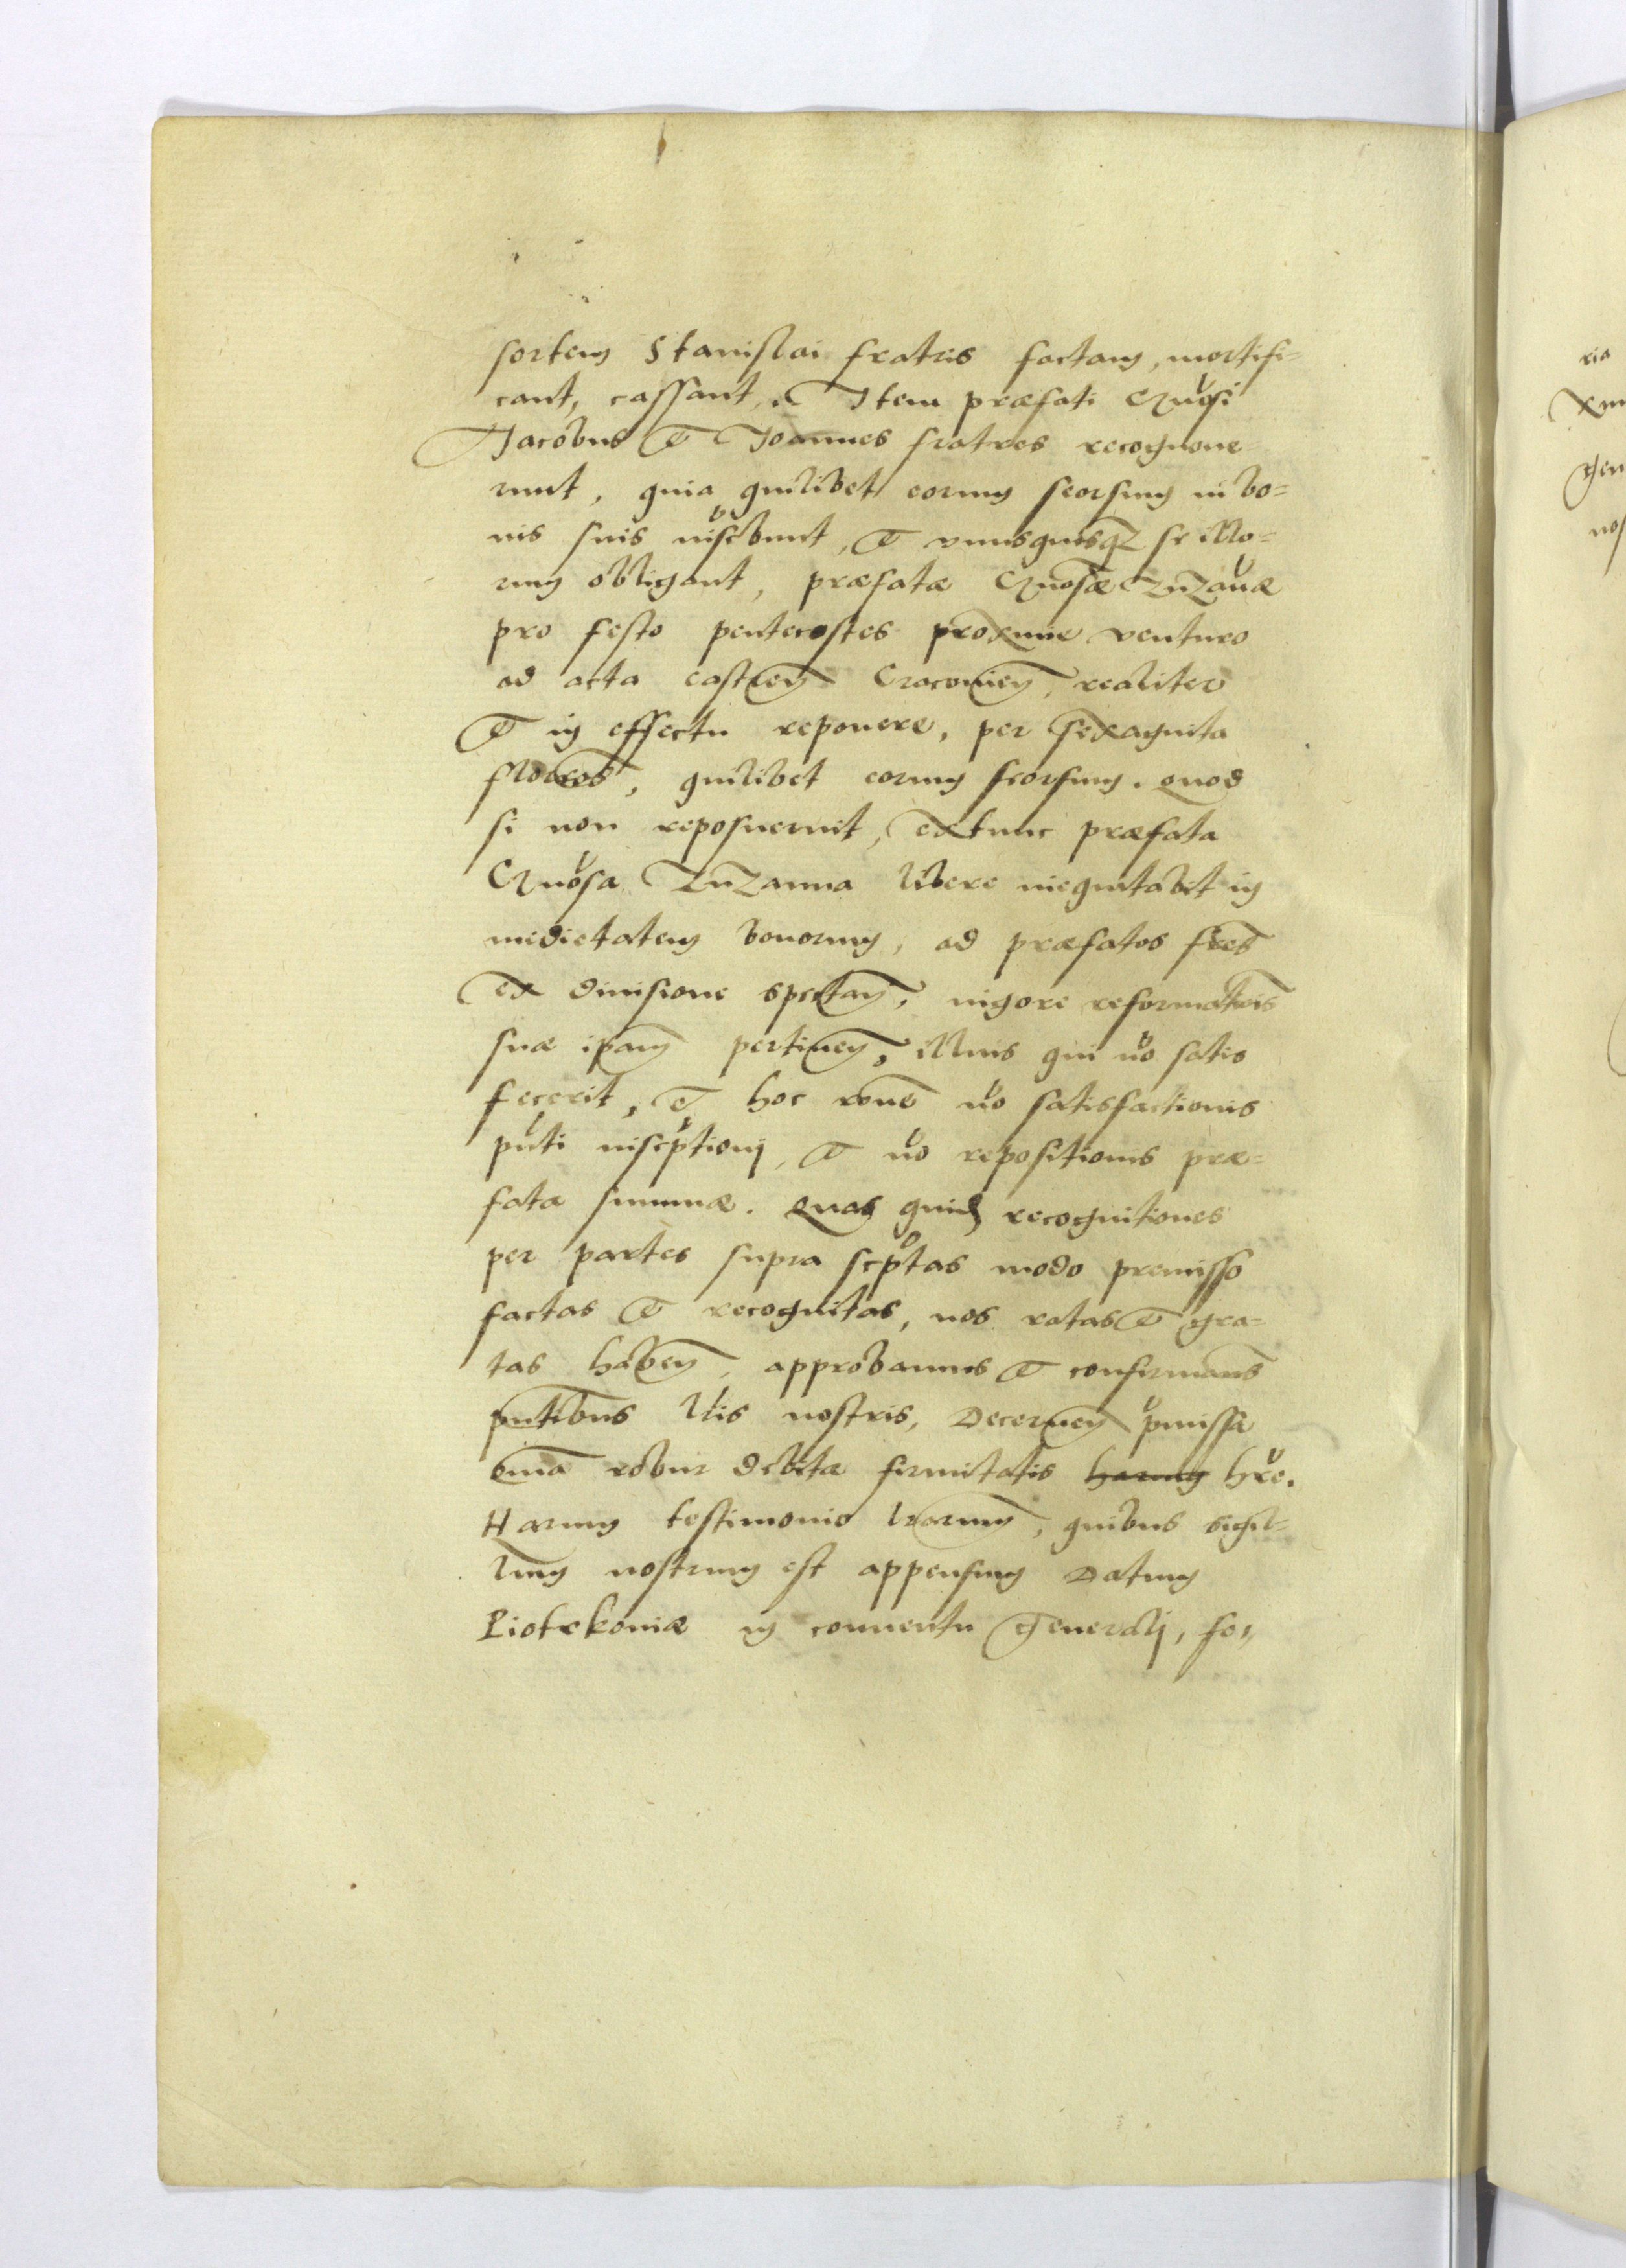 sortem Stanislai fratris factam, mortifi=
cant, cassant. Item præfati Gnosi
Jacobus et Joannes fratres recognoue=
runt, quia quilibet eorum seorsim in bo=
nis suis inscbunt, et vnusquisqz se illo=
rum obligant, præfatæ Gnosæ Zuzanæ
pro festo pentecostes proxime venturo
ad acta castren Cracouien, realiter
et in effectu reponere, per sexaginta
florenos, quilibet eorum seorsim. Quod
si non reposuerint, extunc præfata
Gnosa Zuzanna libere inequitabit in
medietatem bonorum, ad præfatos fres
ex diuisione spectan, uigore reformatois
suæ ipam pertinen, illius qui no satis
fecerit, et hoc rone no satisfactionis
pnti inscptionj, et no repositionis præ=
fatæ summæ. Quas quid recognitiones
per partes supra scptas modo premisso
factas et recognitas, nos ratas et gra=
tas haben, approbamus et confirmams
pntibus lris nostris, Decernen pmissa
omia robur debitæ firmitatis harum hre.
Harum testimonio lrarum, quibus sigil=
lum nostrum est appensum Datum
Piotrkoniæ in conuentu generalj, fe,,
ria
nos